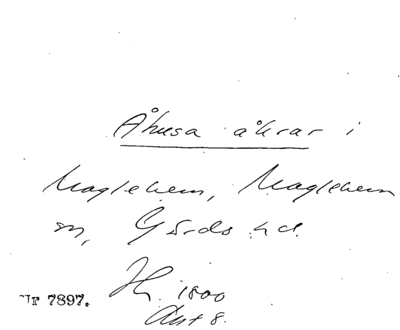 Åhusa åkrar i
Maglehem, Maglehem
sn, Gärds hd.
Nr 7897. Hj. 1800
Akt 8.